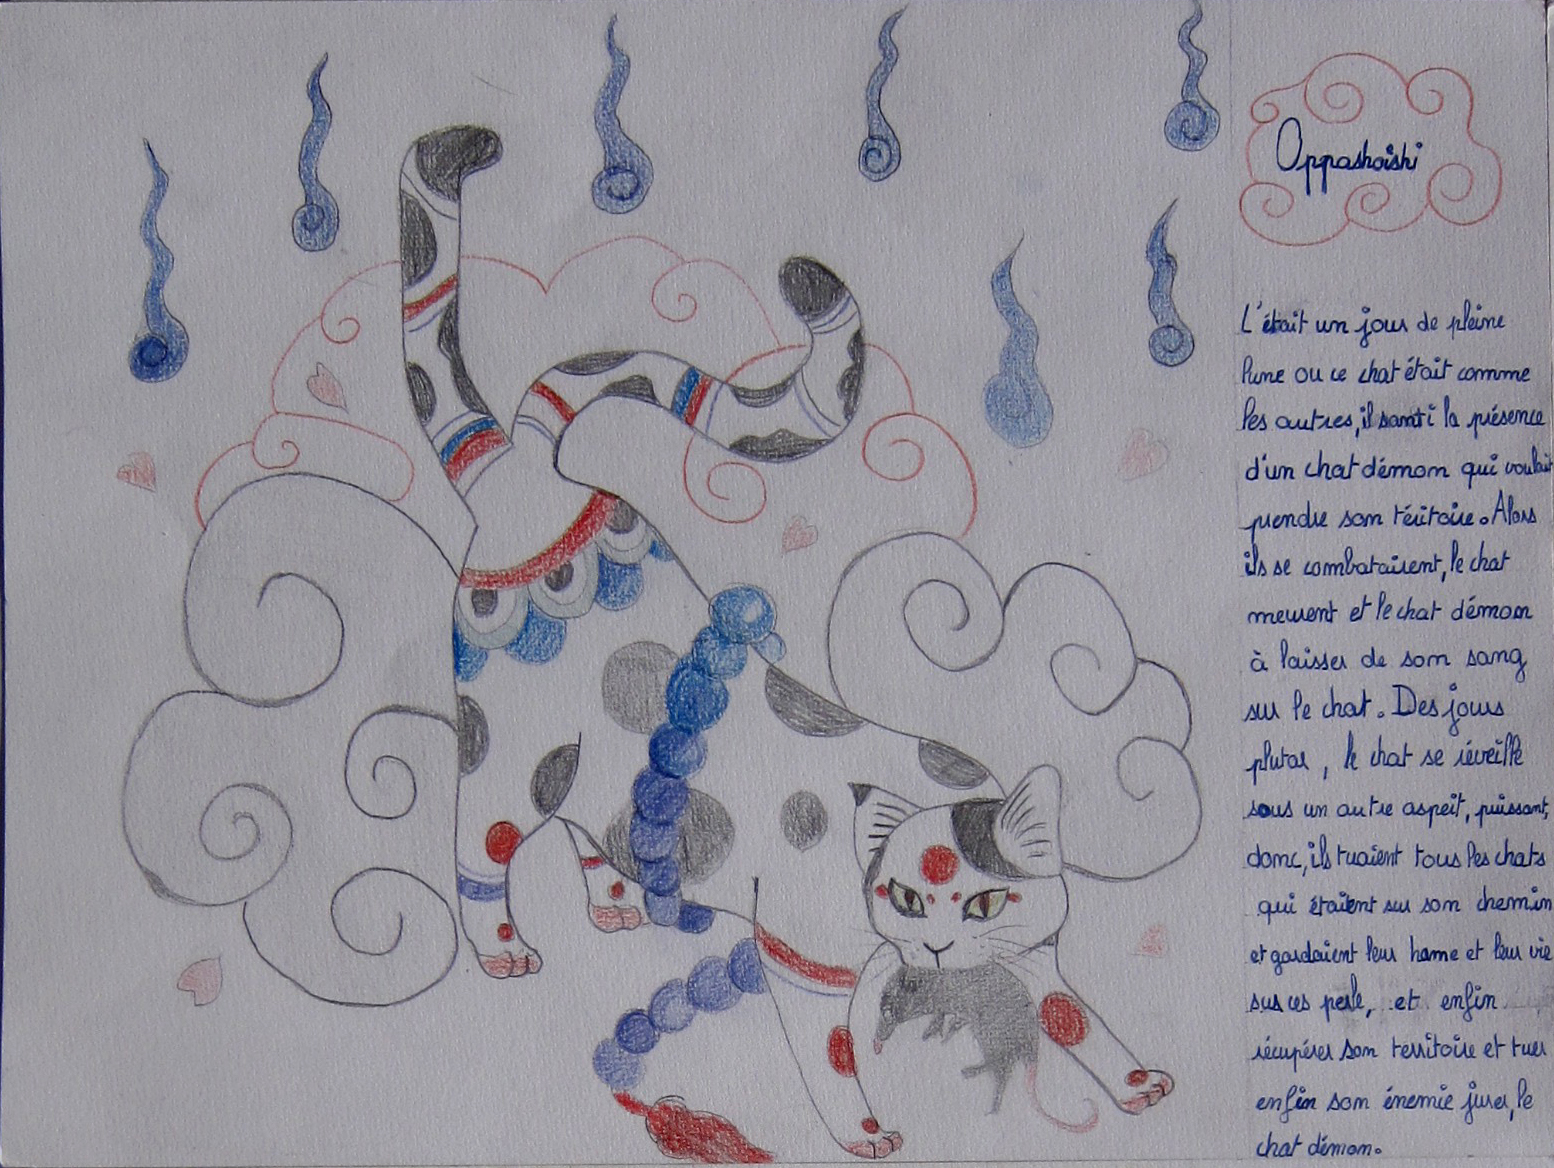 Oppashoishi
C'était un jour de pleine
lune ou ce chat était comme
les autres, il santi la présence
d'un chat démon qui voulait
prendre son téritoire. Alors
ils se combataient, le chat
meurent et le chat démon
à laisser de son sang
sur le chat. Des jours
plutar, le chat se réveille
sous un autre aspeit, puissant,
donc, ils tuaient tous les chats
qui étaient sur son chemin
et gardaient leur hame et leur vie
sus ces perle, et enfin
récupérer son territoire et tuer
enfin son énemie jurer, le
chat démon.